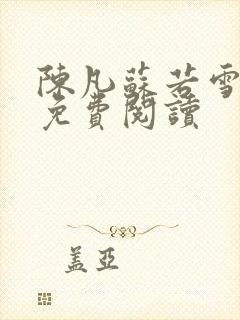 陳凡蘇若雪
免費閱讀
蓋亞